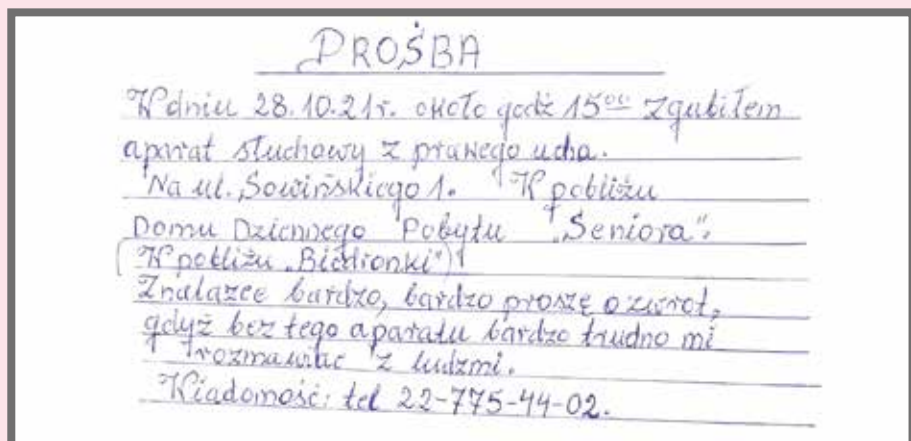 PROŚBA
W dniu 28.10.21r. około godź 15⁰⁰ zgubiłem
aparat słuchowy z prawego ucha.
Na ul. Sowińskiego 1. W pobliżu
Domu Dziennego Pobytu "Seniora".
(W pobliżu „Biedronki")!
Znalazce bardzo, bardzo proszę o zwrot,
gdyż bez tego aparatu bardzo trudno mi
rozmawiać z ludzmi.
Wiadomość: tel 22-775-44-02.